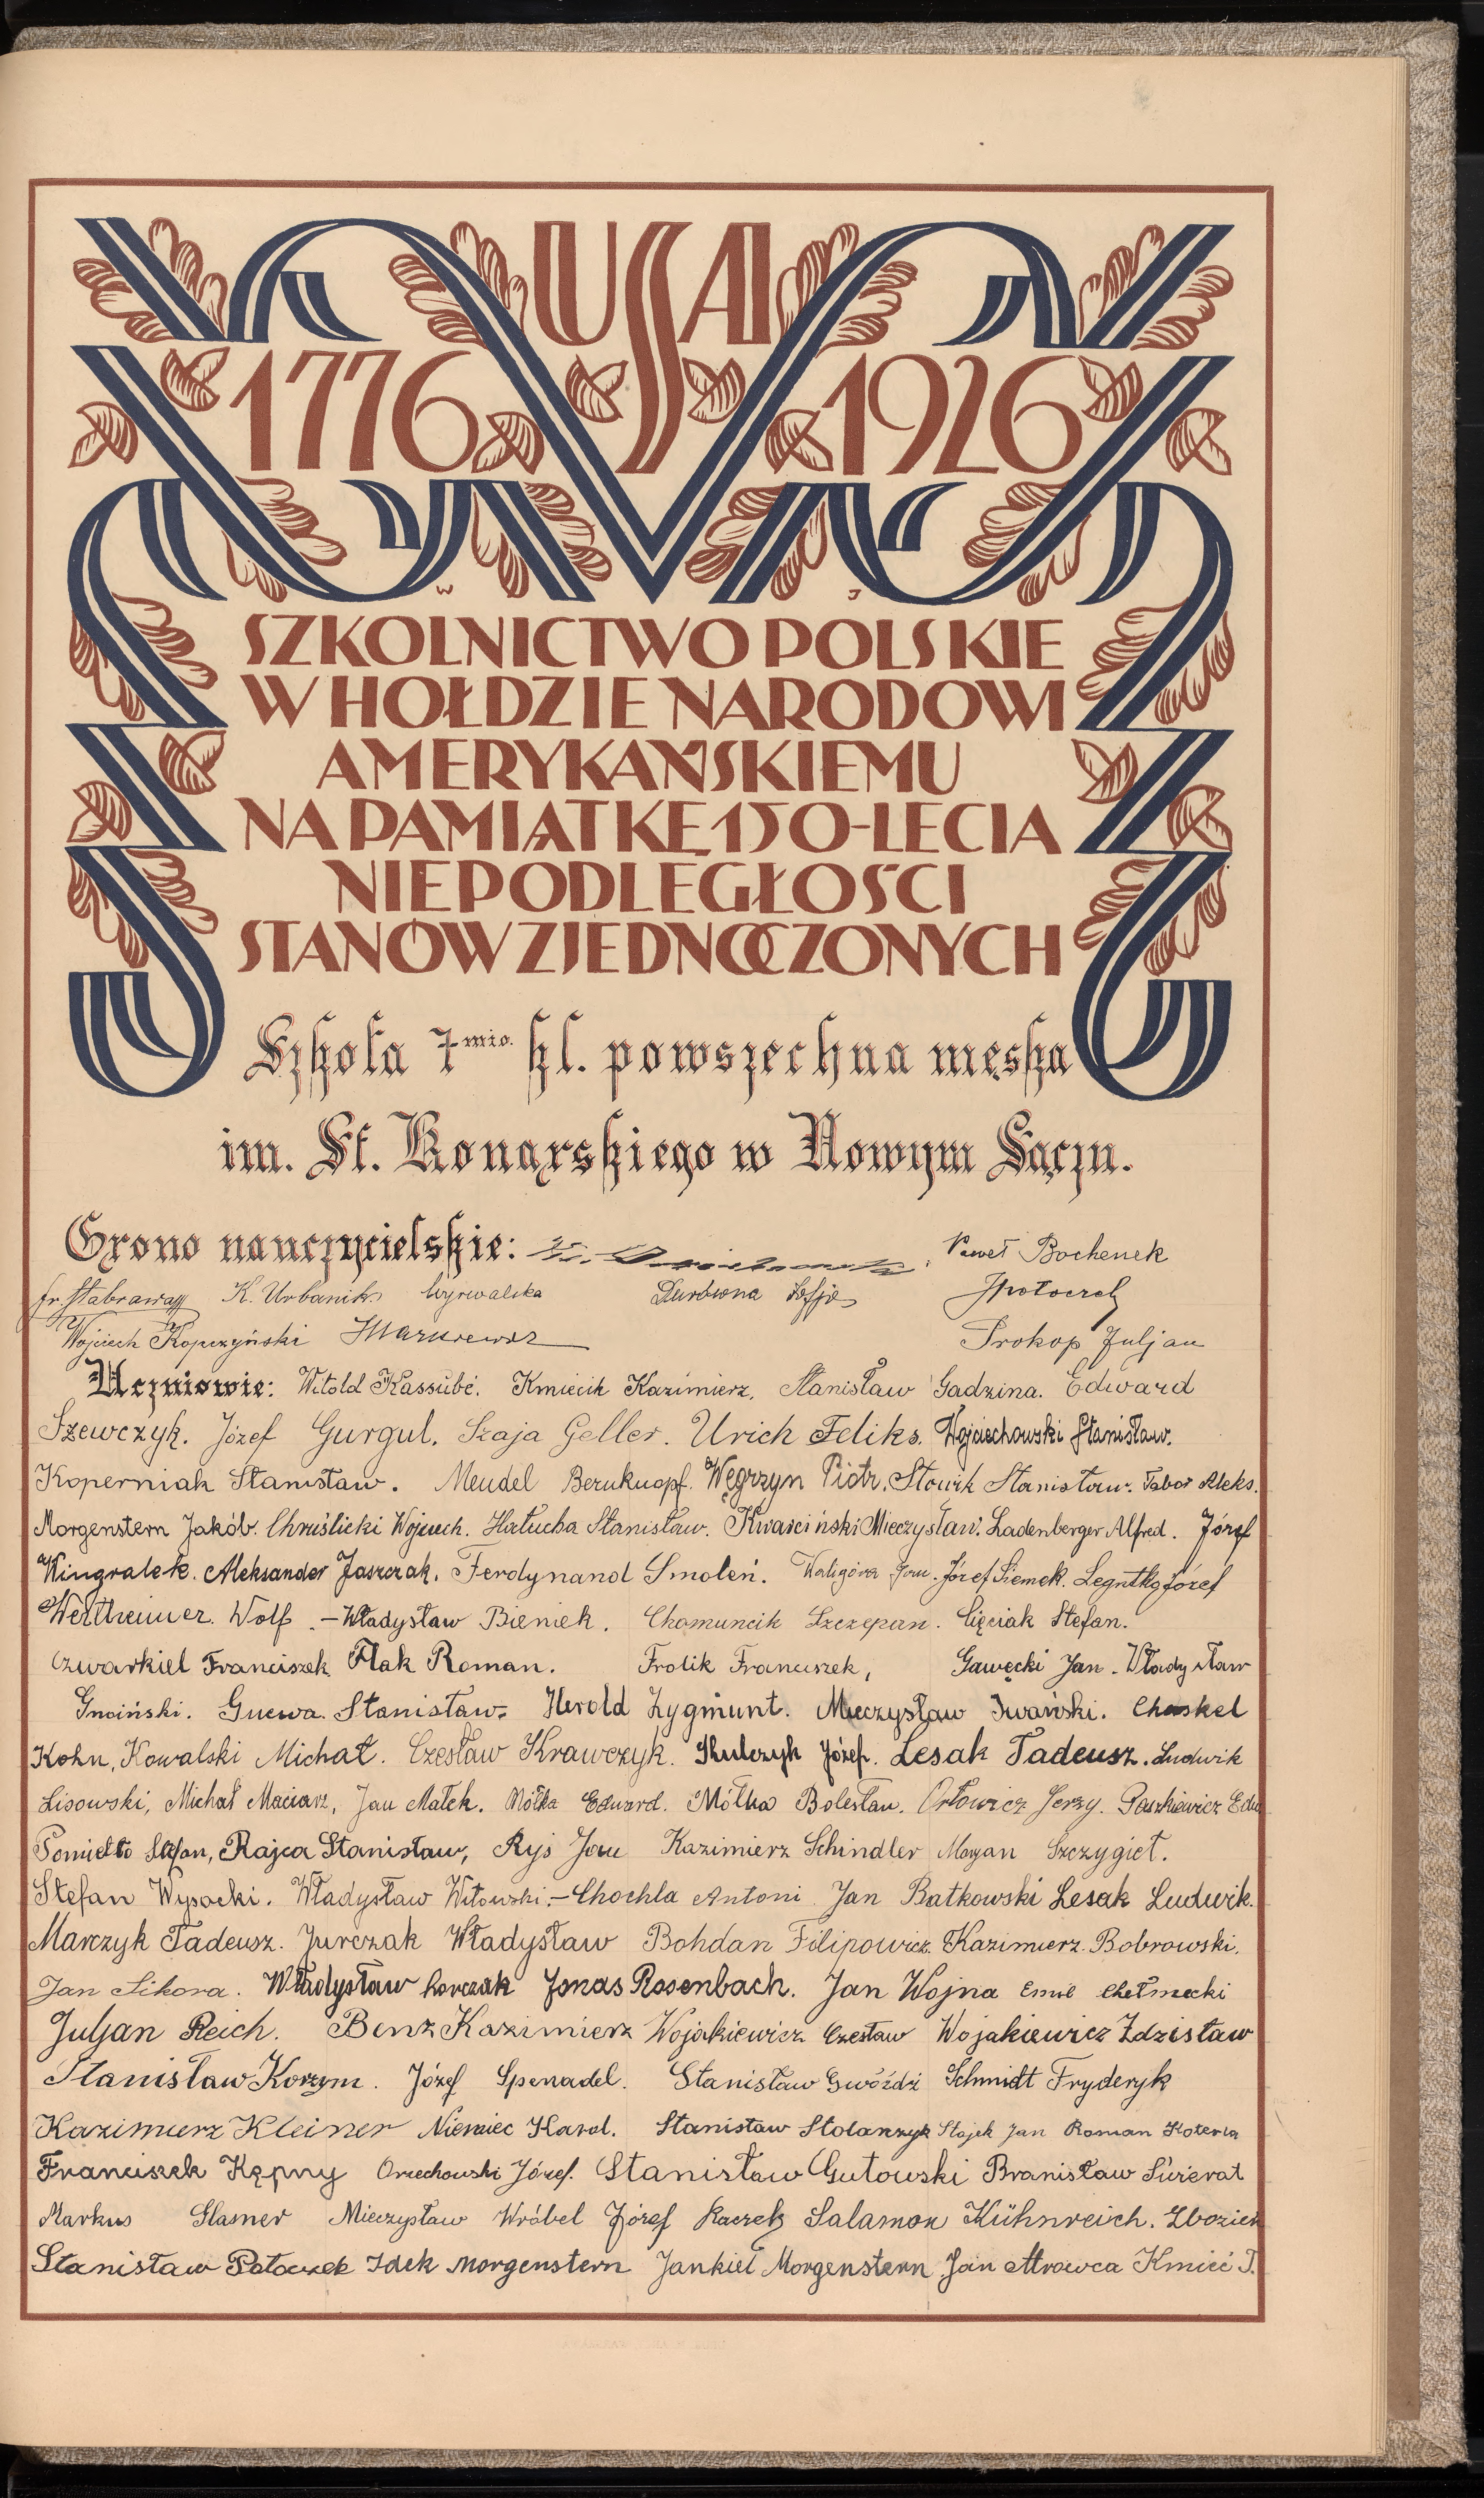 USA
1776 1926
W J
SZKOLNICTWO POLSKIE
W HOŁDZIE NARODOWI
AMERYKAŃSKIEMU
NA PAMIĄTKĘ 150-LECIA
NIEPODLEGŁOŚCI
STANÓW ZJEDNOCZONYCH
Szkoła 7mio. kl. powszechna męska
im. St. Konarskiego w Nowym Sączu.
Grono nauczycielskie: Paweł Bochenek
Fr. Stabrawa K. Urbanik Wyrwalska Durbona Zofja JPotoczek
Wojciech Kopczyński Prokop Juljan
Uczniowie: Witold Kassube. Kmiecik Kazimierz. Stanisław Gadzina. Edward
Szewczyk. Józef Gurgul. Szaja Geller. Urich Feliks. Wojciechowski Stanisław.
Koperniak Stanisław. Mendel Berukuopf. Węgrzyn Piotr. Słowik Stanisław. Tabor Aleks.
Morgenstern Jakób. Chruślicki Wojciech. Hatucha Stanisław. Kwaściński Mieczysław. Ladenberger Alfred. Józef
Wingralek. Aleksander Jaszczak. Ferdynand Smoleń. Waligóra Jan. Józef Siemek. Legutko Józef
Wertheimer Wolf. - Władysław Bieniek. Chomuncik Szczepan. Cięciak Stefan.
Czwarkiel Franciszek Flak Roman. Frolik Franciszek, Gawęcki Jan. Władysław
Gnoiński. Gucwa Stanisław. Herold Zygmunt. Mieczysław Iwański. Chaskel
Kohn, Kowalski Michał. Czesław Krawczyk. Kulczyk Józef. Lesak Tadeusz. Ludwik
Lisowski, Michał Maciarz, Jan Małek. Mółka Edward. Mółka Bolesław. Orłowicz Jerzy. Paszkiewicz Edw
Pomietło Stefan, Rajca Stanisław, Ryś Jan Kazimierz Schindler Marjan Szczygieł.
Stefan Wysocki. Władysław Witowski. - Chochla Antoni. Jan Batkowski Lesak Ludwik.
Marczyk Tadeusz. Jurczak Władysław Bohdan Filipowicz. Kazimierz Bobrowski.
Jan Sikora. Władysław Korczak Jonas Rosenbach. Jan Wojna Emil Chełmecki
Juljan Reich. Benz Kazimierz Wojakiewicz Czesław Wojakiewicz Zdzisław
Stanisław Korzym. Józef Spenadel. Stanisław Gwóźdź Schmidt Fryderyk
Kazimierz Kleiner Niemiec Karol. Stanisław Stolarzyk Stojek Jan Roman Koterla
Franciszek Kępny Orzechowski Józef. Stanisław Gutowski Bronisław Świerat
Markus Glasner Mieczysław Wróbel Józef Kaczek Salamon Kühnreich. Zbozień
Stanisław Potoczek Idek Morgenstern Jankiel Morgenstern Jan Mrowca Kmieć J.